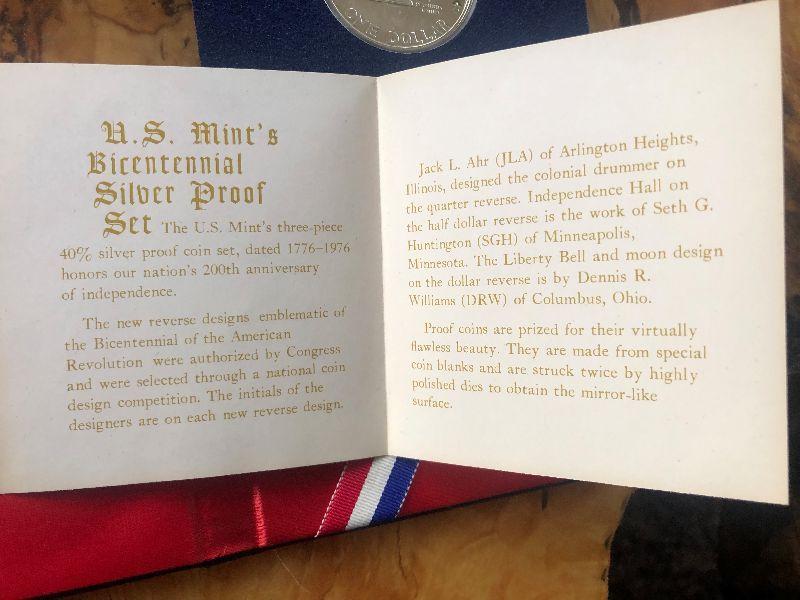 ONE DOLLAR
U.S. Mint's
Bicentennial
Silver Proof
Set The U.S. Mint's three-piece
40% silver proof coin set, dated 1776–1976
honors our nation's 200th anniversary
of independence.
The new reverse designs emblematic of
the Bicentennial of the American
Revolution were authorized by Congress
and were selected through a national coin
design competition. The initials of the
designers are on each new reverse design.
Jack L. Ahr (JLA) of Arlington Heights,
Illinois, designed the colonial drummer on
the quarter reverse. Independence Hall on
the half dollar reverse is the work of Seth G.
Huntington (SGH) of Minneapolis,
Minnesota. The Liberty Bell and moon design
on the dollar reverse is by Dennis R.
Williams (DRW) of Columbus, Ohio.
Proof coins are prized for their virtually
flawless beauty. They are made from special
coin blanks and are struck twice by highly
polished dies to obtain the mirror-like
surface.